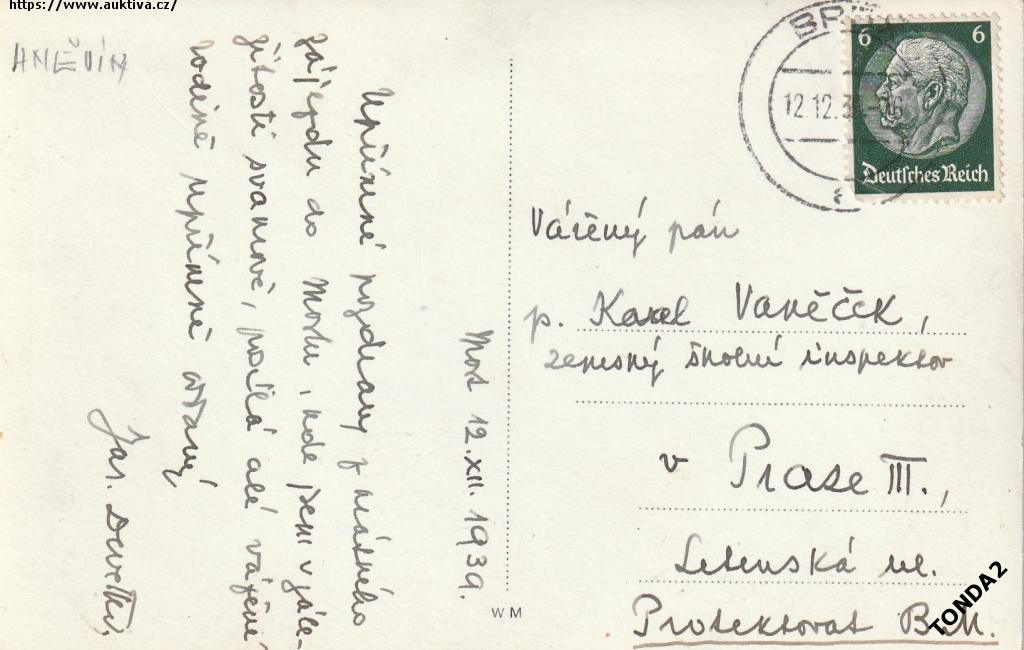 https://www.auktiva.cz/
HNĚVÍN
Most 12.XII. 1939.
Upřímné pozdravy z
zájezdu do Mostu, kde jsem v zále-
žitosti svazové, posílá celé vážené
rodině upřímně oddaný
Jar.
BR
12.12.3
6 6
Deutsches Reich
Vážený pán
p. Karel Vaněček,
zemský školní inspektor
v Praze III.,
Letenská ul.
Protektorat B.M.
W M
TONDA2